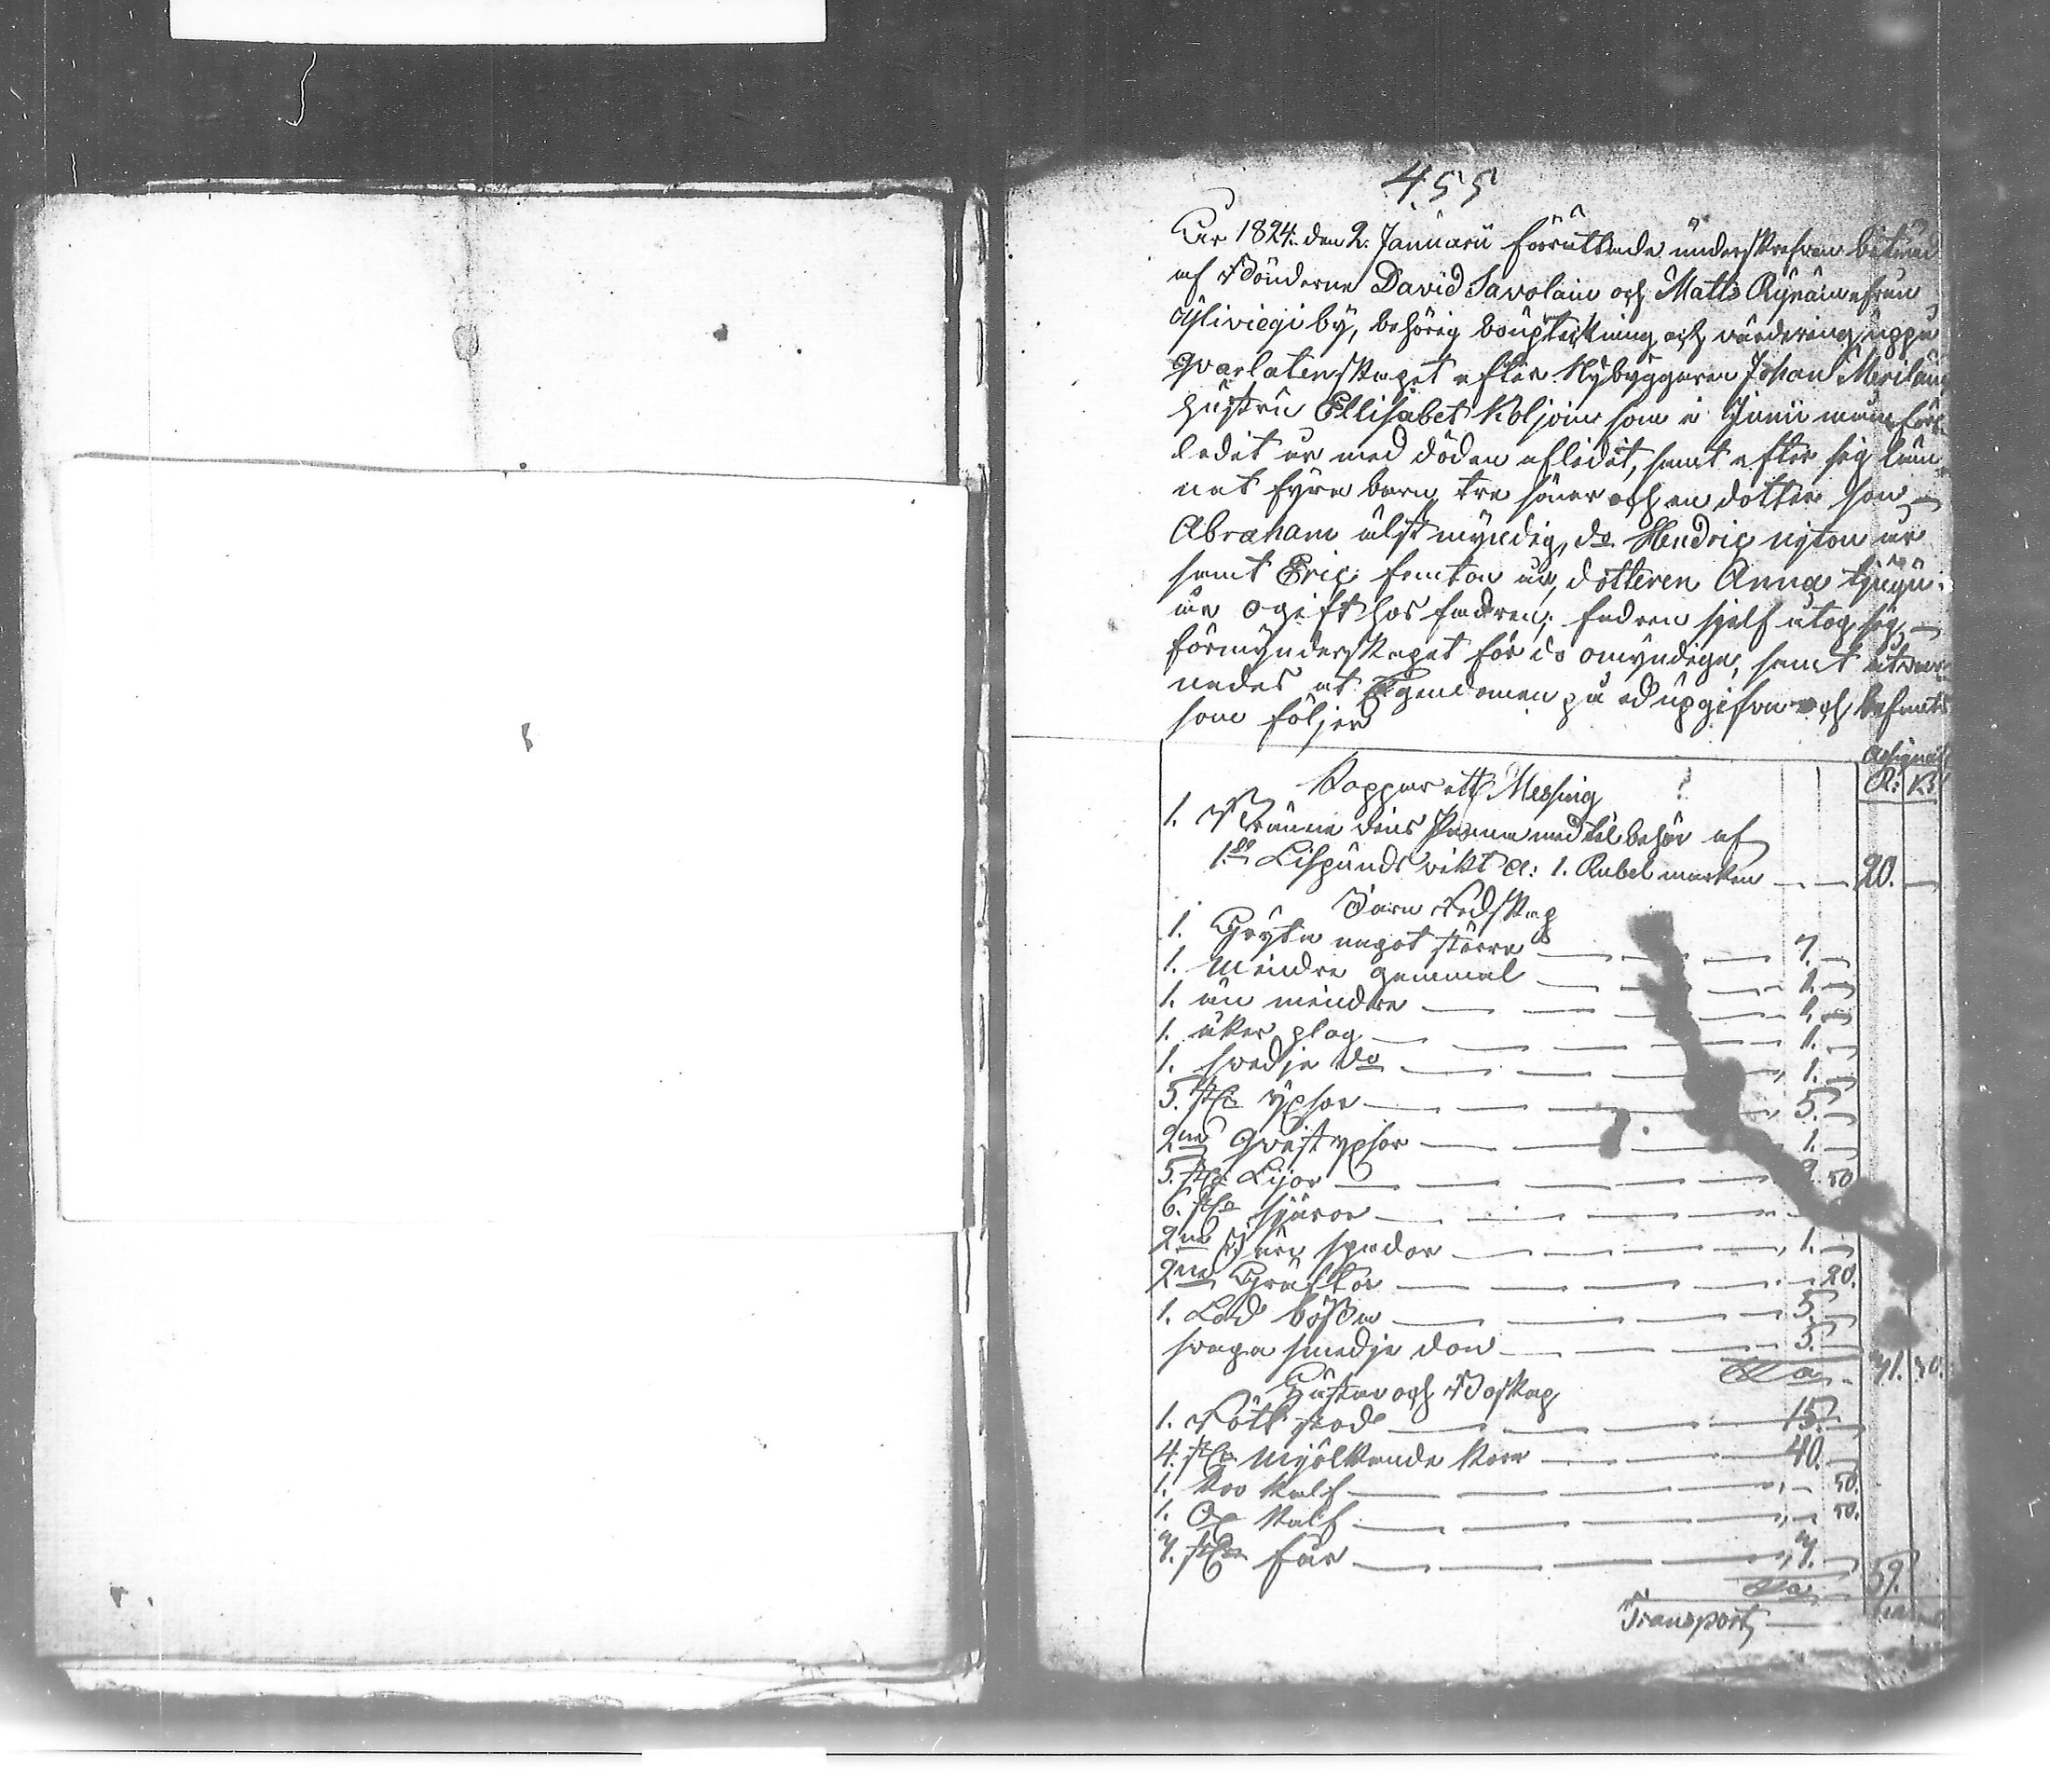 455
År 1824. den 2. Januarii förrättade underskrefven biträd
af Bönderne David Savolain och Matts Rÿnäin ifrån
Ÿliviegi bÿ, behörig bouptekning och värdering uppå
qvarlatenskapet efter Nÿbyggaren Johan Meriläin
hustru Ellisabet Koljoin som i Junii månad för
ledit år med döden afledit, samt efter sig läm
nat fÿra barn, tre söner och en dotter son
Abraham älst mÿndig, do Hendric nijton år
samt Eric femton år, dotteren Anna tjugu
år ogift hos fadren; fadren sjelf åtog sig
förmÿnderskapet för de omÿndige, samt
nades at Egendomen på Ed upgifva och befants
som följer
Assignat
R: K:
Koppar ätt Messing
1. Bränvins panna med tilbehör af
1. Lispunds vikt a: 1. Rubel marken 20.
Järn Redskap
1. Grÿta något större 7.
1. Mindre gammal 1.
1. än mindre 1.
1. åker plog 1.
1. svedje do 1.
5. st ÿxor 5.
2ne qvist ÿxor 1.
5. st Lijor 50
6. st skäror
2ne Järn spador 1.
2ne Gräftor 20.
1. Lod bössa 5.
svaga smedje don 5.
Sa
Hästar och Boskap
1. Rött sto 15.
4. st Mjölkande kor 40.
1. ko kalf 50.
1. Ox kalf 50.
7. st får 7.
Sa 59.
Transport